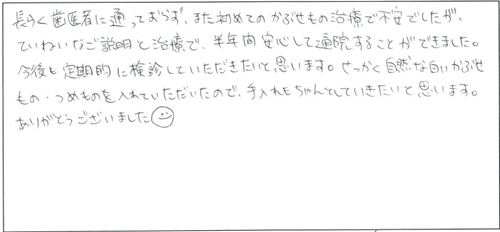 長らく歯医者に通っておらず、また初めてのかぶせもの治療で不安でしたが、
ていねいなご説明と治療で、半年間安心して通院することができました。
今後も定期的に検診していただきたいと思います。せっかく自然な白いかぶせ
もの・つめものを入れていただいたので、手入れもちゃんとしていきたいと思います。
ありがとうございました☺